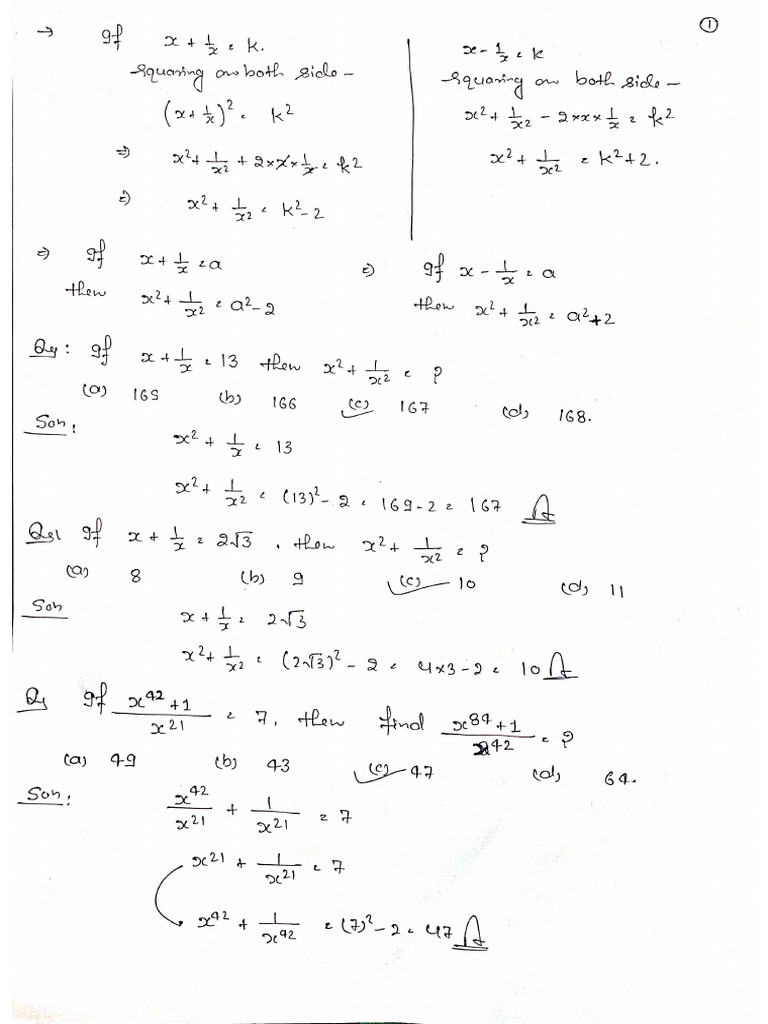 ①
→ If x + 1/x = k.
squaring on both side –
(x + 1/x)² = k²
⇒ x² + 1/x² + 2×x×1/x = k²
⇒ x² + 1/x² = k² – 2
x – 1/x = k
squaring on both side –
x² + 1/x² – 2×x×1/x = k²
x² + 1/x² = k² + 2.
⇒ If x + 1/x = a
then x² + 1/x² = a² – 2
⇒ If x – 1/x = a
then x² + 1/x² = a² + 2
Q: If x + 1/x = 13 then x² + 1/x² = ?
(a) 165 (b) 166 (c) 167 (d) 168.
Son:
x² + 1/x = 13
x² + 1/x² = (13)² – 2 = 169 – 2 = 167 A
Q: If x + 1/x = 2√3, then x² + 1/x² = ?
(a) 8 (b) 9 (c) 10 (d) 11
Son
x + 1/x = 2√3
x² + 1/x² = (2√3)² – 2 = 4×3 – 2 = 10 A
Q If (x⁴² + 1)/x²¹ = 7, then find (x⁸⁴ + 1)/x⁴² = ?
(a) 49 (b) 43 (c) 47 (d) 64.
Son:
x⁴²/x²¹ + 1/x²¹ = 7
x²¹ + 1/x²¹ = 7
x⁴² + 1/x⁴² = (7)² – 2 = 47 A